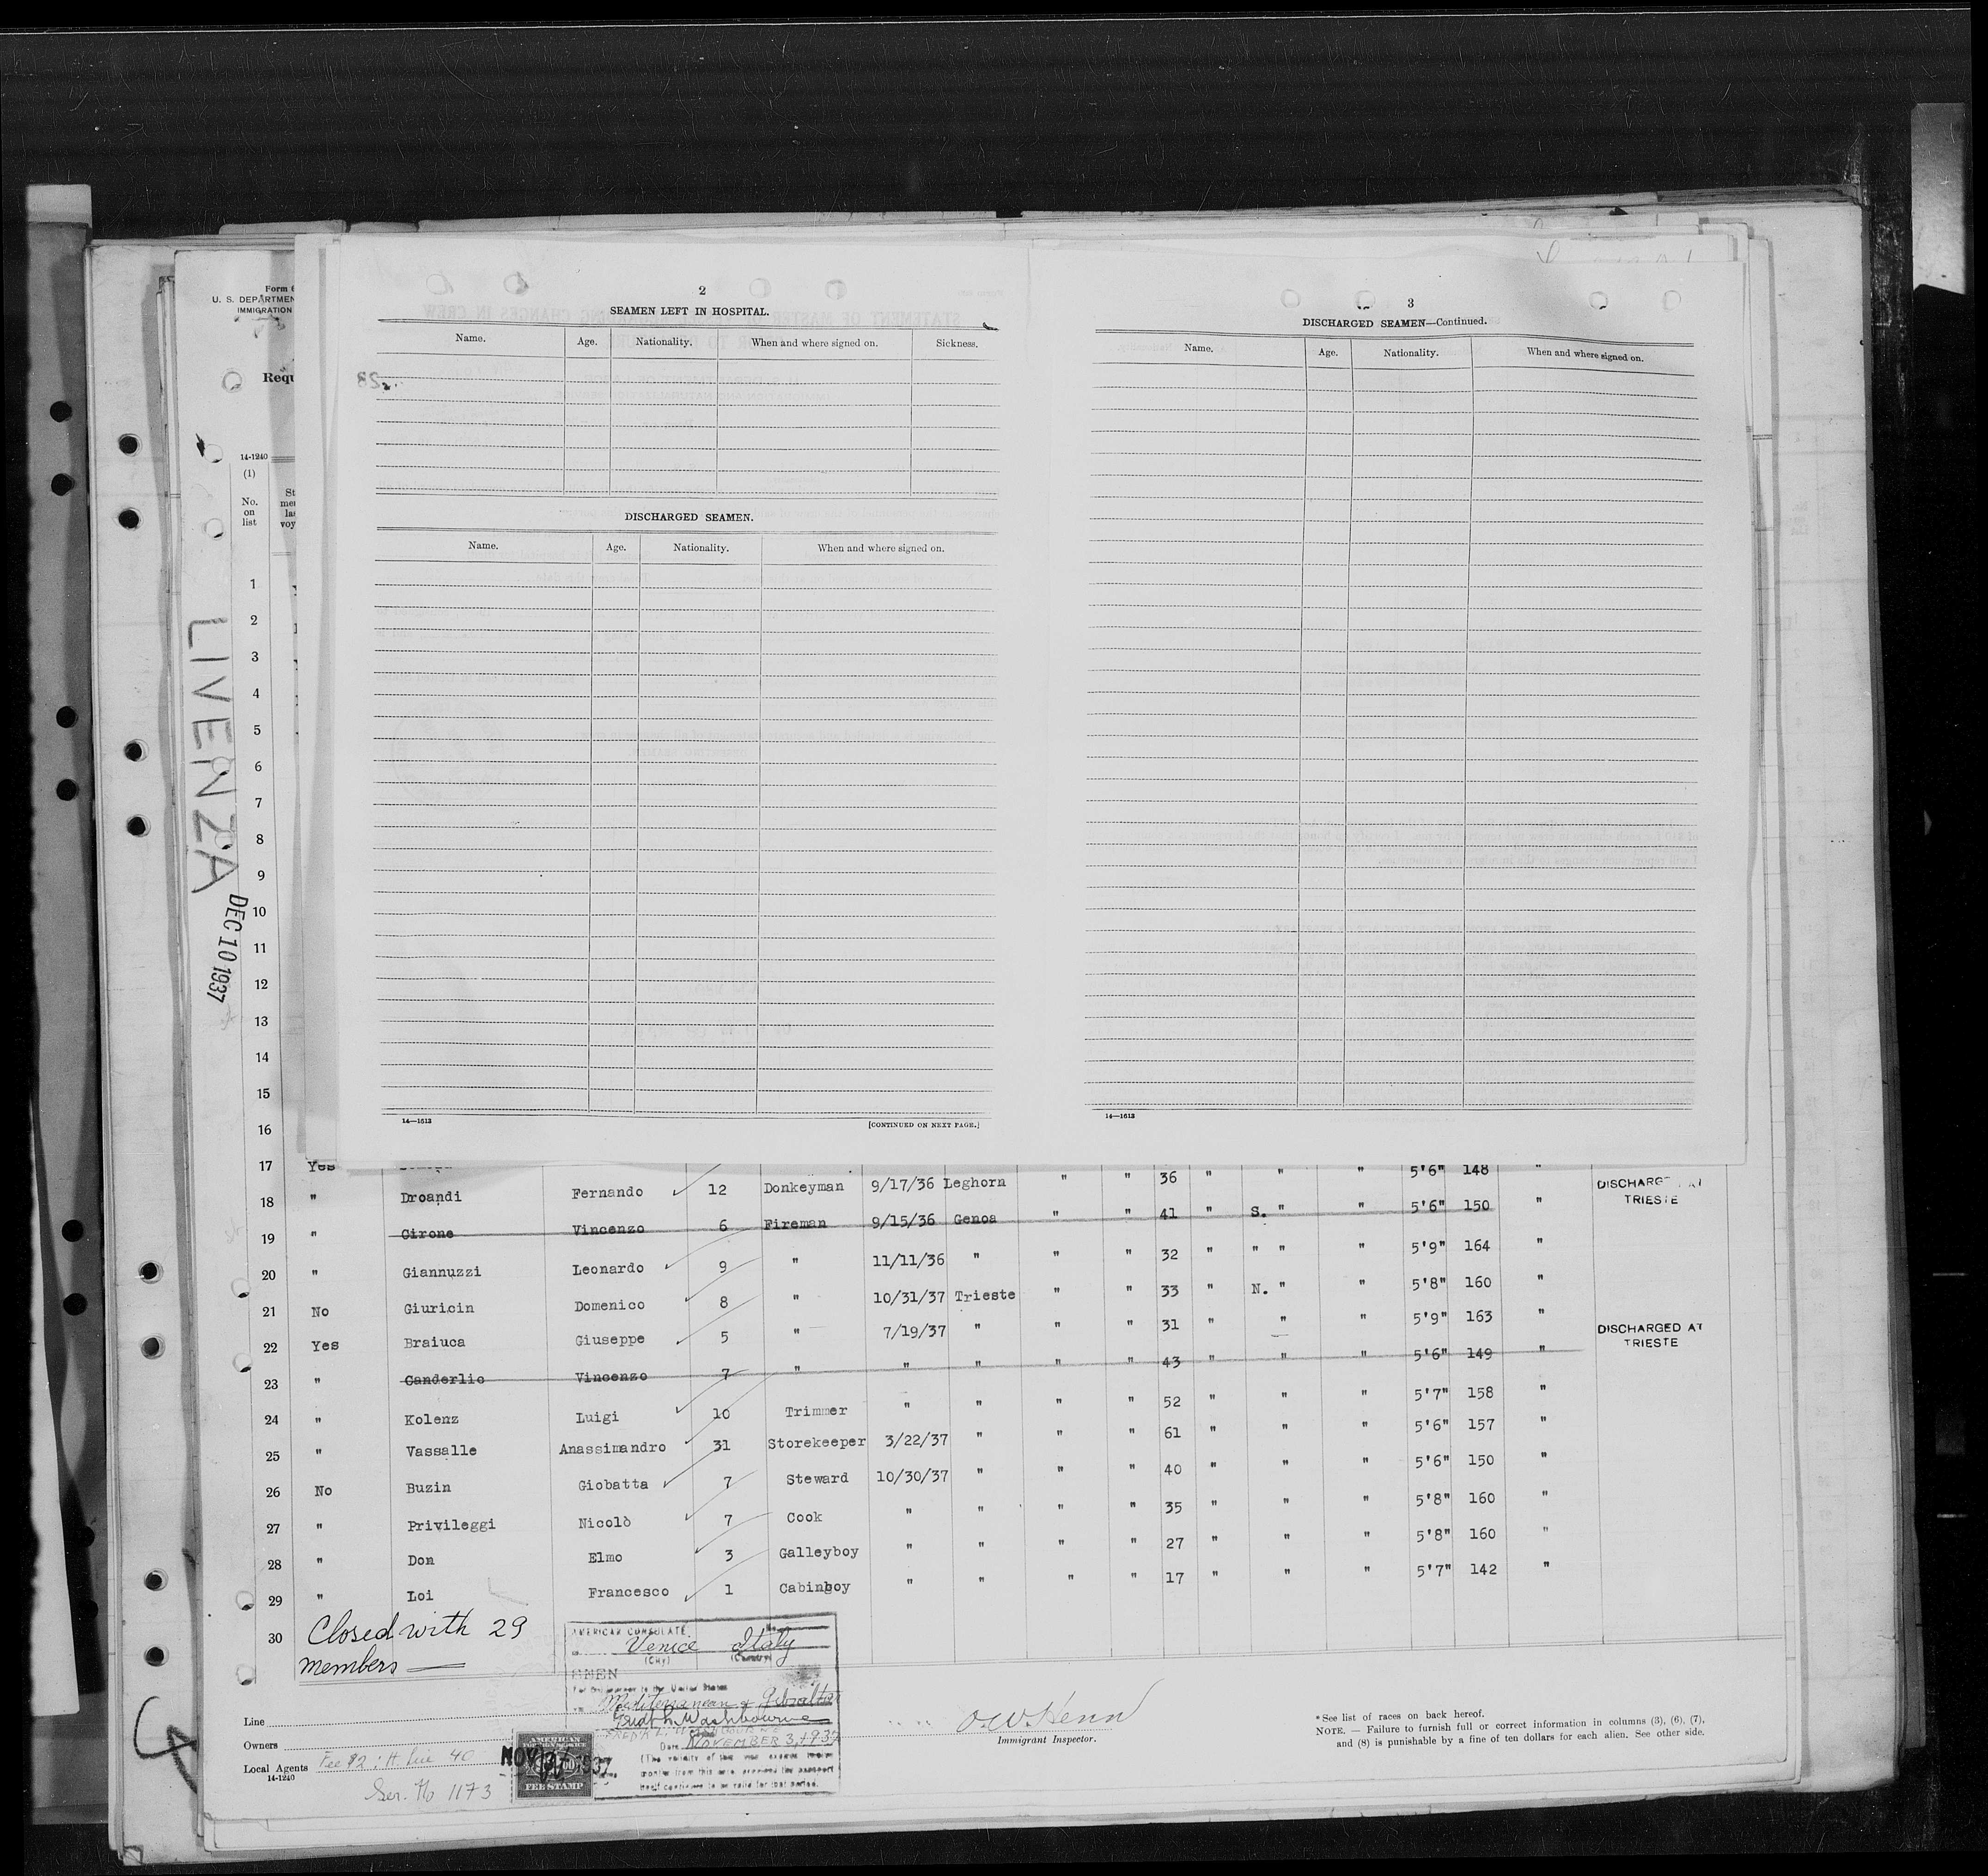 Form 6
U. S. DEPARTMEN
IMMIGRATION
Requ
14-1240
(1)
No. on list
St
me
la
voy
LIVENZA
DEC 10 1937
2
SEAMEN LEFT IN HOSPITAL.
Name. Age. Nationality. When and where signed on. Sickness.
DISCHARGED SEAMEN.
Name. Age. Nationality. When and where signed on.
14—1613 [CONTINUED ON NEXT PAGE.]
3
DISCHARGED SEAMEN—Continued.
Name. Age. Nationality. When and where signed on.
14—1613
1
2
3
4
5
6
7
8
9
10
11
12
13
14
15
16
17 Yes
18 " Droandi Fernando 12 Donkeyman 9/17/36 Leghorn " " 36 " " " 5'6" 148 "
DISCHARG AT TRIESTE
19 " Cirone Vincenzo 6 Fireman 9/15/36 Genoa " " 41 " S. " " 5'6" 150 "
20 " Giannuzzi Leonardo 9 " 11/11/36 " " " 32 " " " " 5'9" 164 "
21 No Giuricin Domenico 8 " 10/31/37 Trieste " " 33 " N. " " 5'8" 160 "
22 Yes Braiuca Giuseppe 5 " 7/19/37 " " " 31 " " " 5'9" 163 "
DISCHARGED AT TRIESTE
23 " Canderlic Vincenzo 7 " " " " " 43 " " " 5'6" 149 "
24 " Kolenz Luigi 10 Trimmer " " " " 52 " " " 5'7" 158 "
25 " Vassalle Anassimandro 31 Storekeeper 3/22/37 " " " 61 " " " 5'6" 157 "
26 No Buzin Giobatta 7 Steward 10/30/37 " " " 40 " " " 5'6" 150 "
27 " Privileggi Nicolò 7 Cook " " " " 35 " " " 5'8" 160 "
28 " Don Elmo 3 Galleyboy " " " " 27 " " " 5'8" 160 "
29 " Loi Francesco 1 Cabinboy " " " " 17 " " " 5'7" 142 "
30 Closed with 29
members —
AMERICAN CONSULATE
Venice Italy
(City) (Country)
Mediterranean & Gibraltar
Washbourne
Date NOVEMBER 3, 1937
(The validity of this visa expires twelve
months from this date provided the passport
itself continues to be valid for that period.
AMERICAN
FEE STAMP
NOV 1937
Line
Owners
Local Agents
14-1240
Fee $2 : It. Lire 40
Ser. No 1173
O.W. Henn
Immigrant Inspector.
*See list of races on back hereof.
NOTE. — Failure to furnish full or correct information in columns (3), (6), (7),
and (8) is punishable by a fine of ten dollars for each alien. See other side.